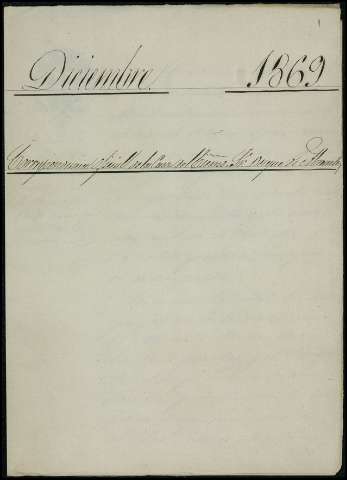 1
Diciembre 1869
Correspondencia Oficial de la Casa del Exmo. Sr. Duque de